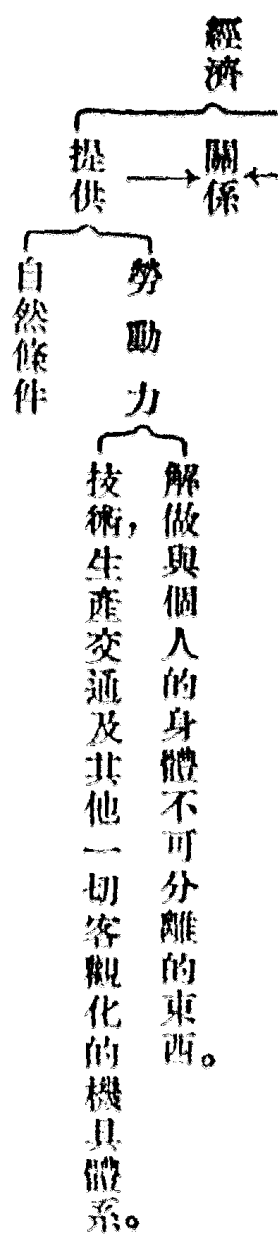 經濟
關係
提供
勞動力
自然條件
解做與個人的身體不可分離的東西。
技術，生產交通及其他一切客觀化的機具體系。